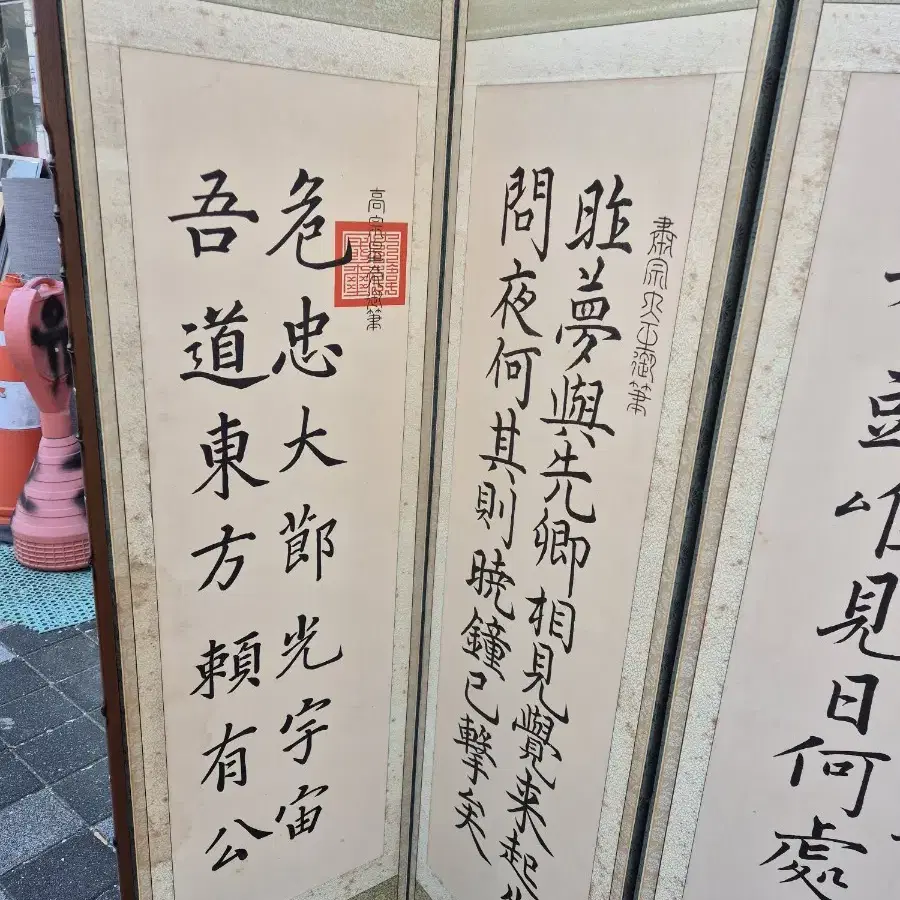 見日何處
肅宗大王御筆
昨夢與先卿相見覺来起
問夜何其則曉鐘已擊矣
高宗皇帝御筆
危忠大節光宇宙
吾道東方頼有公